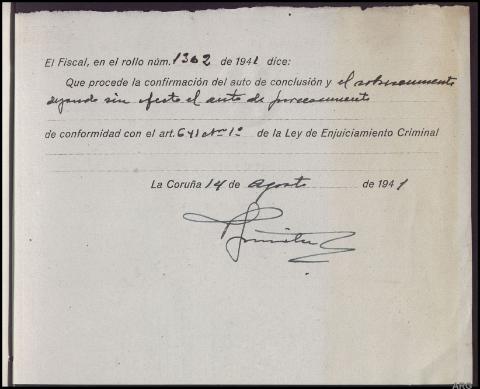 El Fiscal, en el rollo núm. 1302 de 1941 dice:
Que procede la confirmación del auto de conclusión y el sobreseimiento
dejando sin efecto el auto de procesamiento
de conformidad con el art. 641 nº 1º de la Ley de Enjuiciamiento Criminal
La Coruña 14 de agosto de 1941
ARG